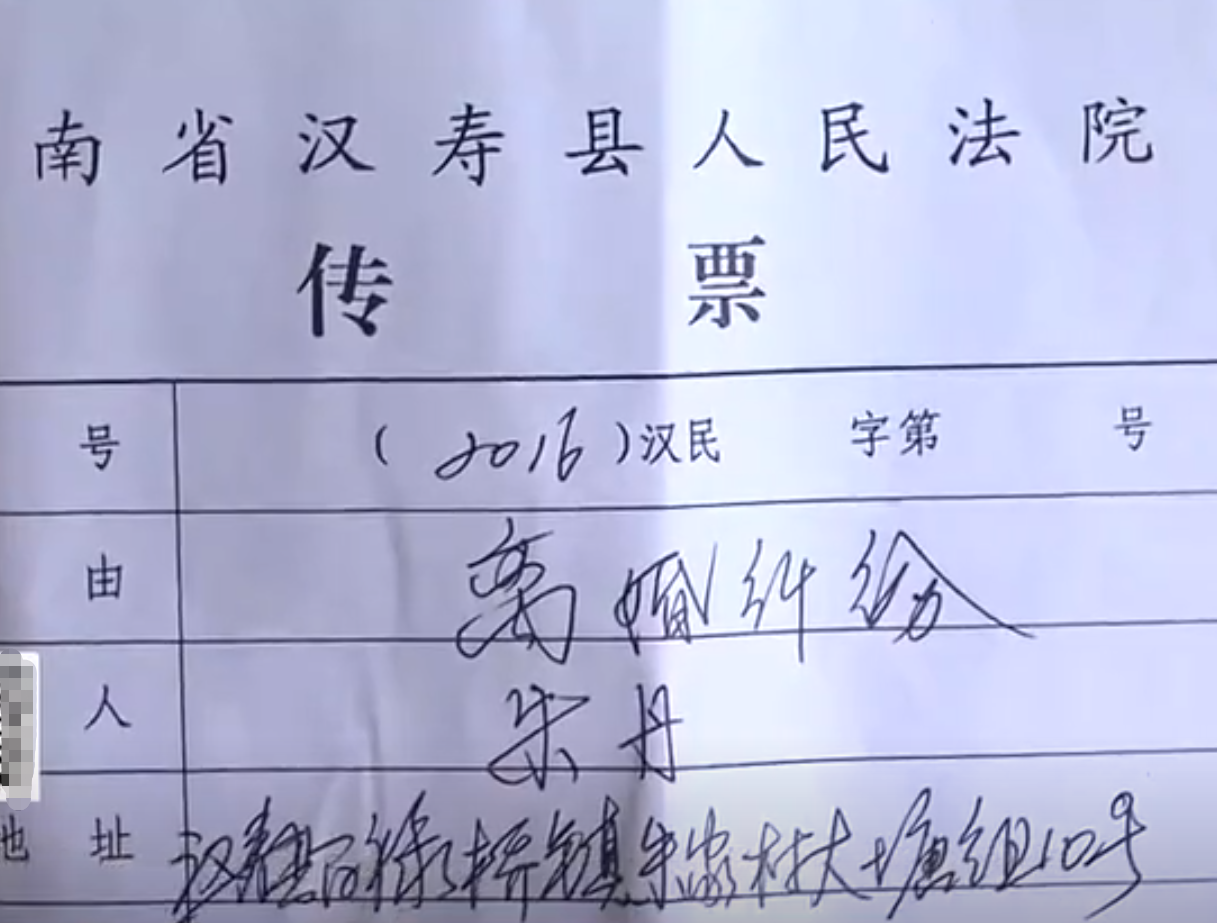 南省汉寿县人民法院
传票
号 (2016)汉民 字第 号
由 离婚纠纷
人 朱丹
地址 汉寿县 桥镇朱家村大塘组10号